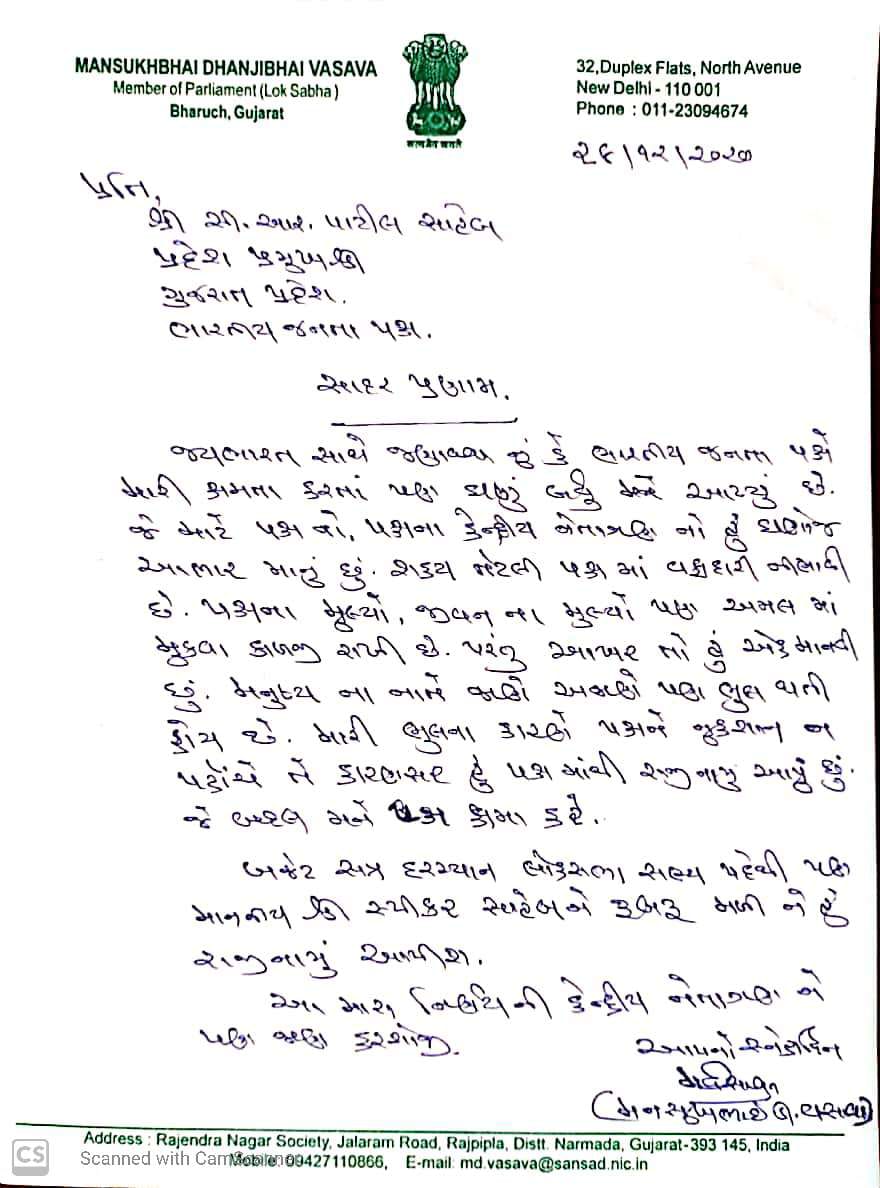 MANSUKHBHAI DHANJIBHAI VASAVA
Member of Parliament (Lok Sabha)
Bharuch, Gujarat
सत्यमेव जयते
32,Duplex Flats, North Avenue
New Delhi - 110 001
Phone : 011-23094674
૨૮/૧૨/૨૦૨૦
પ્રતિ,
શ્રી સી. આર. પાટીલ સાહેબ
પ્રદેશ પ્રમુખશ્રી
ગુજરાત પ્રદેશ.
ભારતીય જનતા પક્ષ.
સાદર પ્રણામ.
જયભારત સાથે જણાવવાનું કે ભારતીય જનતા પક્ષે
મારી ક્ષમતા કરતાં પણ ઘણું બધું મને આપ્યું છે.
જે માટે પક્ષ નો, પક્ષના કેન્દ્રીય નેતાગણ નો હું ઘણોજ
આભાર માનું છું. શક્ય તેટલી પક્ષ માં વફાદારી નીભાવી
છે. પક્ષના મુલ્યો, જીવન ના મુલ્યો પણ અમલ માં
મુકવા કાળજી રાખી છે. પરંતુ આખરે તો હું એક માનવી
છું. મનુષ્ય ના નાતે જાણે અજાણે પણ ભુલ થતી
હોય છે. મારી ભુલના કારણે પક્ષને નુકશાન ન
પહોંચે તે કારણસર હું પક્ષ માંથી રાજીનામુ આપું છું.
જે બદલ મને પક્ષ ક્ષમા કરે.
બજેટ સત્ર દરમ્યાન લોકસભા સભ્ય પદેથી પણ
માનનીય શ્રી સ્પીકર સાહેબને રૂબરૂ મળી ને હું
રાજીનામું આપીશ.
આ મારા નિર્ણયની કેન્દ્રીય નેતાગણ ને
પણ જાણ કરશોજી.
આપનો સ્નેહાધિન
(મનસુખભાઈ ધ. વસાવા)
Address : Rajendra Nagar Society, Jalaram Road, Rajpipla, Distt. Narmada, Gujarat-393 145, India
Mobile: 09427110866, E-mail: md.vasava@sansad.nic.in
CS
Scanned with CamScanner